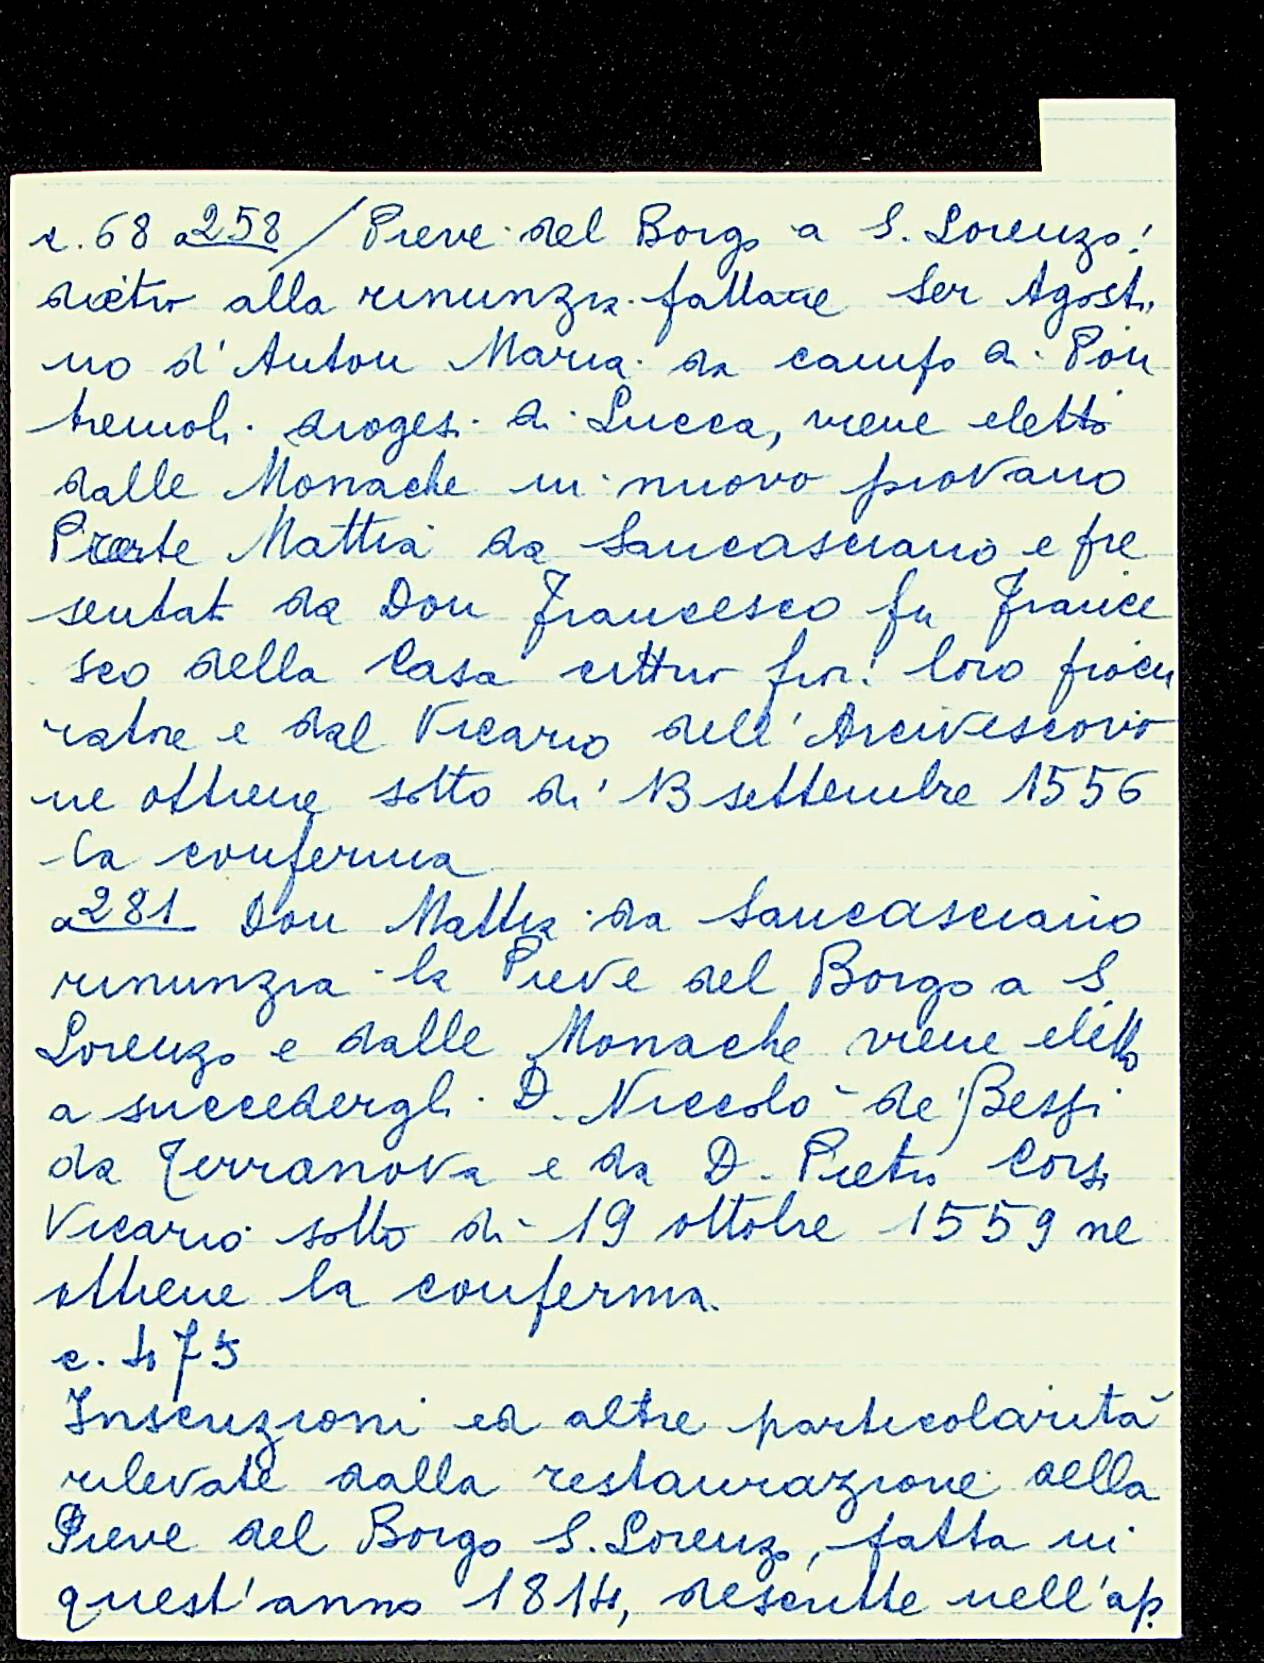 c. 68 a 258 / Pieve del Borgo a S. Lorenzo:
dietro alla rinunzia fattane Ser Agosti
no d'Anton Maria da campo di Pon
tremoli dioges. di Lucca, viene eletto
dalle Monache in nuovo piovano
Prete Mattia da Sancasciano e pre
sentat da Don Francesco fu France
sco della Casa cittno fior: loro procu
ratore e dal Vicario dell'Arcivescovo
ne ottiene sotto di' 13 settembre 1556
la conferma
a 281 Don Mattia da Sancasciano
rinunzia la Pieve del Borgo a S.
Lorenzo e dalle Monache viene eletto
a succedergli D. Niccolò de' Bessi
da Terranova e da D. Pietro Corsi
Vicario sotto di 19 ottobre 1559 ne
ottiene la conferma.
c. 475
Inscrizioni ed altre particolarità
rilevate dalla restaurazione della
Pieve del Borgo S. Lorenzo, fatta in
quest'anno 1814, descritte nell'ap.